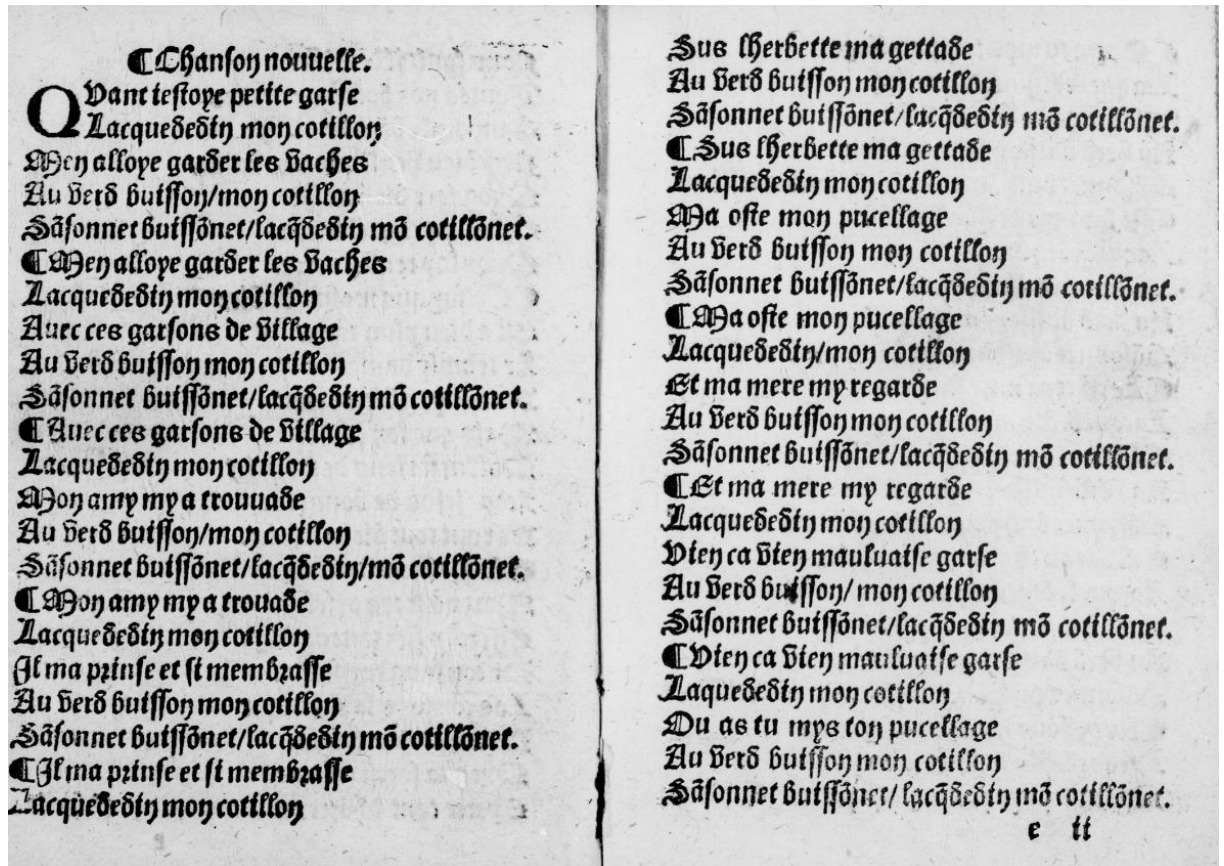 ¶Chanson nouuelle.
QVant iestoye petite garse
Lacquededin mon cotillon
Men alloye garder les vaches
Au verd buisson/mon cotillon
Sãsonnet buissõnet/lacq̃dedin mõ cotillõnet.
¶Men alloye garder les vaches
Lacquededin mon cotillon
Auec ces garsons de village
Au verd buisson mon cotillon
Sãsonnet buissõnet/lacq̃dedin mõ cotillõnet.
¶Auec ces garsons de village
Lacquededin mon cotillon
Mon amy my a trouuade
Au verd buisson/mon cotillon
Sãsonnet buissõnet/lacq̃dedin/mõ cotillõnet.
¶Mon amy my a trouade
Lacquededin mon cotillon
Il ma prinse et si membrasse
Au verd buisson mon cotillon
Sãsonnet buissõnet/lacq̃dedin mõ cotillõnet.
¶Il ma prinse et si membrasse
Lacquededin mon cotillon
Sus lherbette ma gettade
Au verd buisson mon cotillon
Sãsonnet buissõnet/lacq̃dedin mõ cotillõnet.
¶Sus lherbette ma gettade
Lacquededin mon cotillon
Ma oste mon pucellage
Au verd buisson mon cotillon
Sãsonnet buissõnet/lacq̃dedin mõ cotillõnet.
¶Ma oste mon pucellage
Lacquededin/mon cotillon
Et ma mere my regarde
Au verd buisson mon cotillon
Sãsonnet buissõnet/lacq̃dedin mõ cotillõnet.
¶Et ma mere my regarde
Lacquededin mon cotillon
Vien ca vien mauluaise garse
Au verd buisson/ mon cotillon
Sãsonnet buissõnet/lacq̃dedin mõ cotillõnet.
¶Vien ca vien mauluaise garse
Laquededin mon cotillon
Ou as tu mys ton pucellage
Au verd buisson mon cotillon
Sãsonnet buissõnet/ lacq̃dedin mõ cotillõnet.
e ii